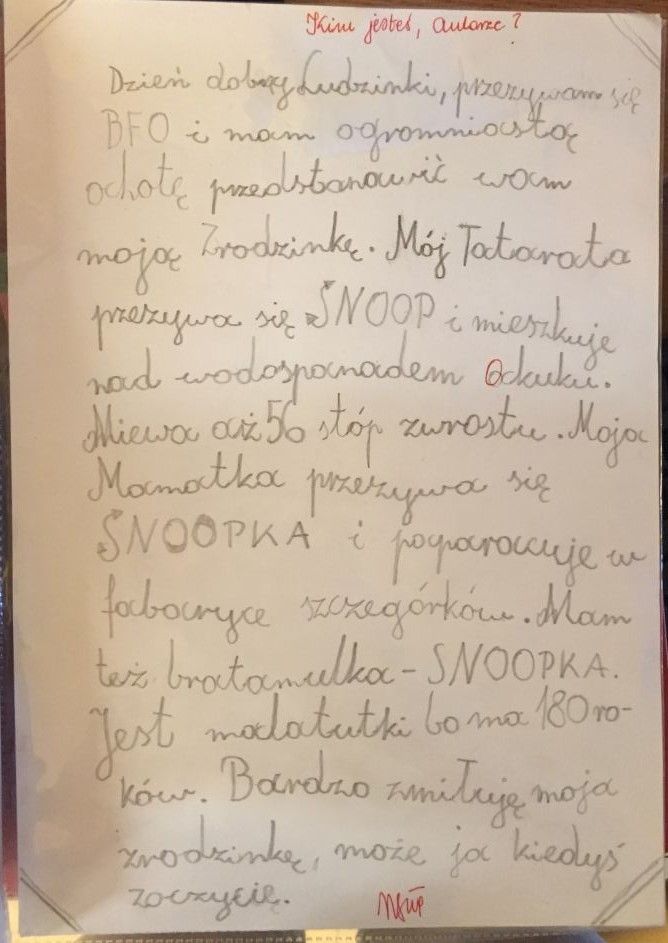 Kim jesteś, autorze?
Dzień dobry Ludzinki, przezywam się
BFO i mam ogromniastą
ochotę przedstanawić wam
moją Zrodzinkę. Mój Tatarata
przezywa się SNOOP i mieszkuje
nad wodospanadem Ockuku.
Miewa aż 56 stóp zwrostu. Moja
Mamatka przezywa się
SNOOPKA i poparacuje w
fabaryce szczegórków. Mam
też bratamulka - SNOOPKA.
Jest malatutki bo ma 180 ro-
ków. Bardzo zmiłuję moja
zrodzinkę, może ja kiedyś
zoczycie.